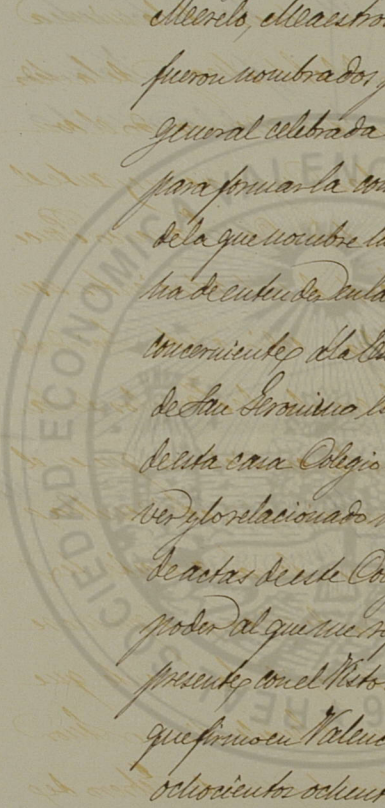 Merelo, Maestros
fueron nombrados
general celebrada
para formar la com
de la que nombre la
ha de entender en la
concerniente a la
de San Geronimo
de esta casa Colegio
ver y lo relacionado
de actas de este Co
poder al que me
presente con el Visto
que firmo en Valenc
ochocientos ochent
REAL SOCIEDAD ECONOMICA VALENC